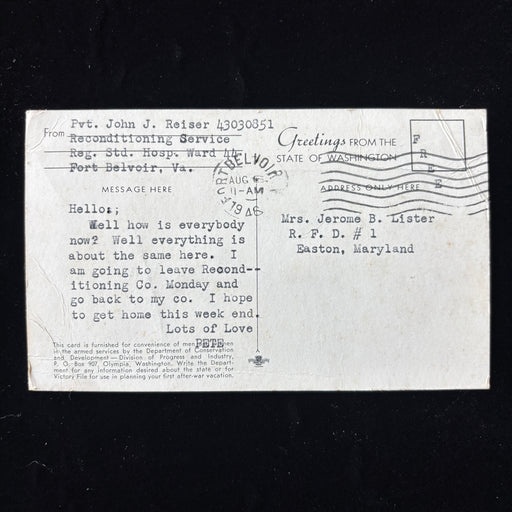 From Pvt. John J. Reiser 43030851
Reconditioning Service
Reg. Std. Hosp. Ward 44
Fort Belvoir, Va.
MESSAGE HERE
Hello:;
Well how is everybody
now? Well everything is
about the same here. I
am going to leave Recond--
itioning Co. Monday and
go back to my co. I hope
to get home this week end.
Lots of Love
PETE
This card is furnished for convenience of men
in the armed services by the Department of Conservation
and Development—Division of Progress and Industry,
P. O. Box 907, Olympia, Washington. Write the Depart-
ment for any information desired about the state or for
Victory File for use in planning your first after-war vacation.
FORT BELVOIR
AUG
11-AM
1946
Greetings FROM THE
STATE OF WASHINGTON
FREE
ADDRESS ONLY HERE
Mrs. Jerome B. Lister
R. F. D. # 1
Easton, Maryland